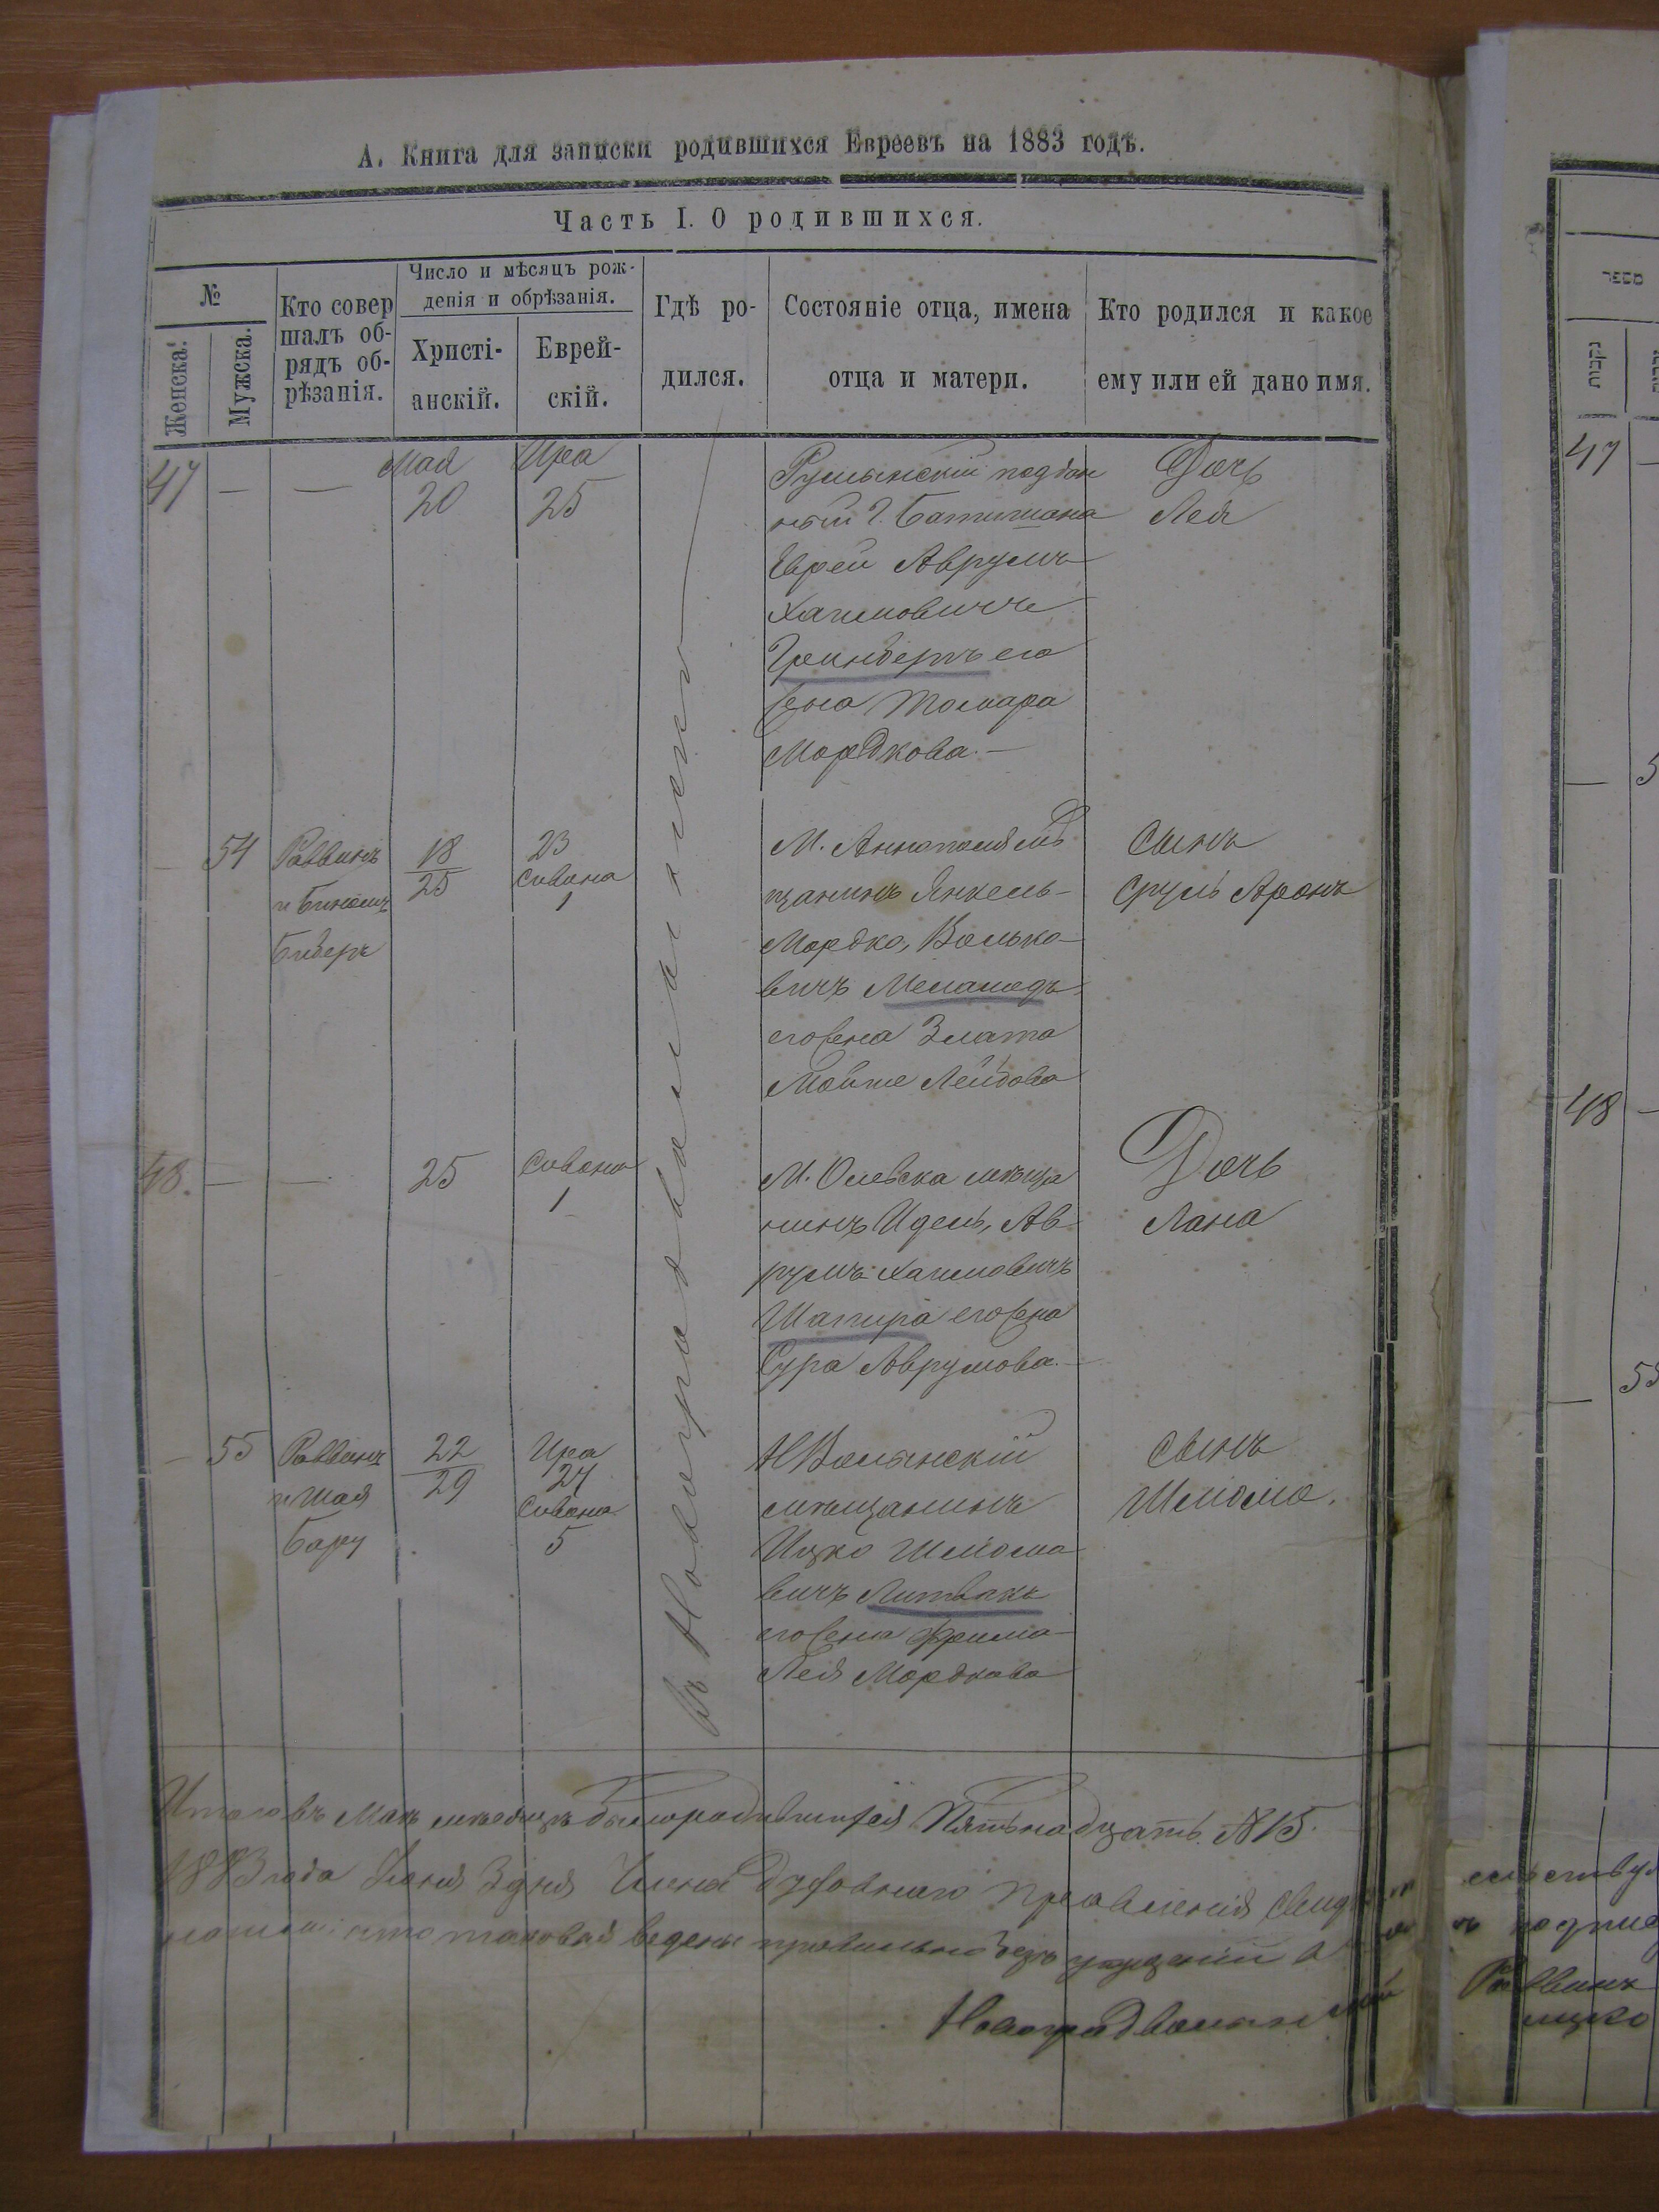 А. Книга для записки родившихся Евреевъ на 1883 годѣ.
Часть I. О родившихся.
№
Женска.
Мужска.
Кто совер
шалъ об-
рядъ об-
рѣзанія.
Число и мѣсяцъ рож-
денія и обрѣзанія.
Христі-
анскій.
Еврей-
скій.
Гдѣ ро-
дился.
Состояніе отца, имена
отца и матери.
Кто родился и какое
ему или ей дано имя.
47 — — Мая Ира
20 25
Румынскій поддан
ный г. Батишана
Еврей Аврумъ
Хаимовичъ
Гринбергъ его
жена Томара
Мордкова. —
Дочь
Лея
— 54 Раввинъ
и Биномъ
Бидеръ
18
25
23
Сивана
1
М. Аннополя мѣ
щанинъ Янкель-
Мордко, Волько-
вичъ Меламедъ
его жена Злата
Мойше Лейбова
Сынъ
Сруль Аронъ
48. — — 25 Сивана
1
М. Олевска мѣща
нинъ Идель, Ав-
румъ Хаимовичъ
Шапиро его жена
Сура Аврумова. —
Дочь
Хана
— 55 Раввинъ
и Шая
22
29
Ира
27
Сивана
5
НВолынскій
мѣщанинъ
Ицко Шліома
вичъ Литвакъ
его жена Фрима-
Лея Мордкова
Сынъ
Шліома.
въ Новоградволынскѣ
Итого въ Маѣ мѣсяцѣ было родившихся Пятьнадцать №15.
1883 года Іюня 3 дня Члены Духовнаго Правленія
что таковая ведена правильно безъ упущеній
Новоградволынскій
47 —
48 —
Раввинъ
Ицко